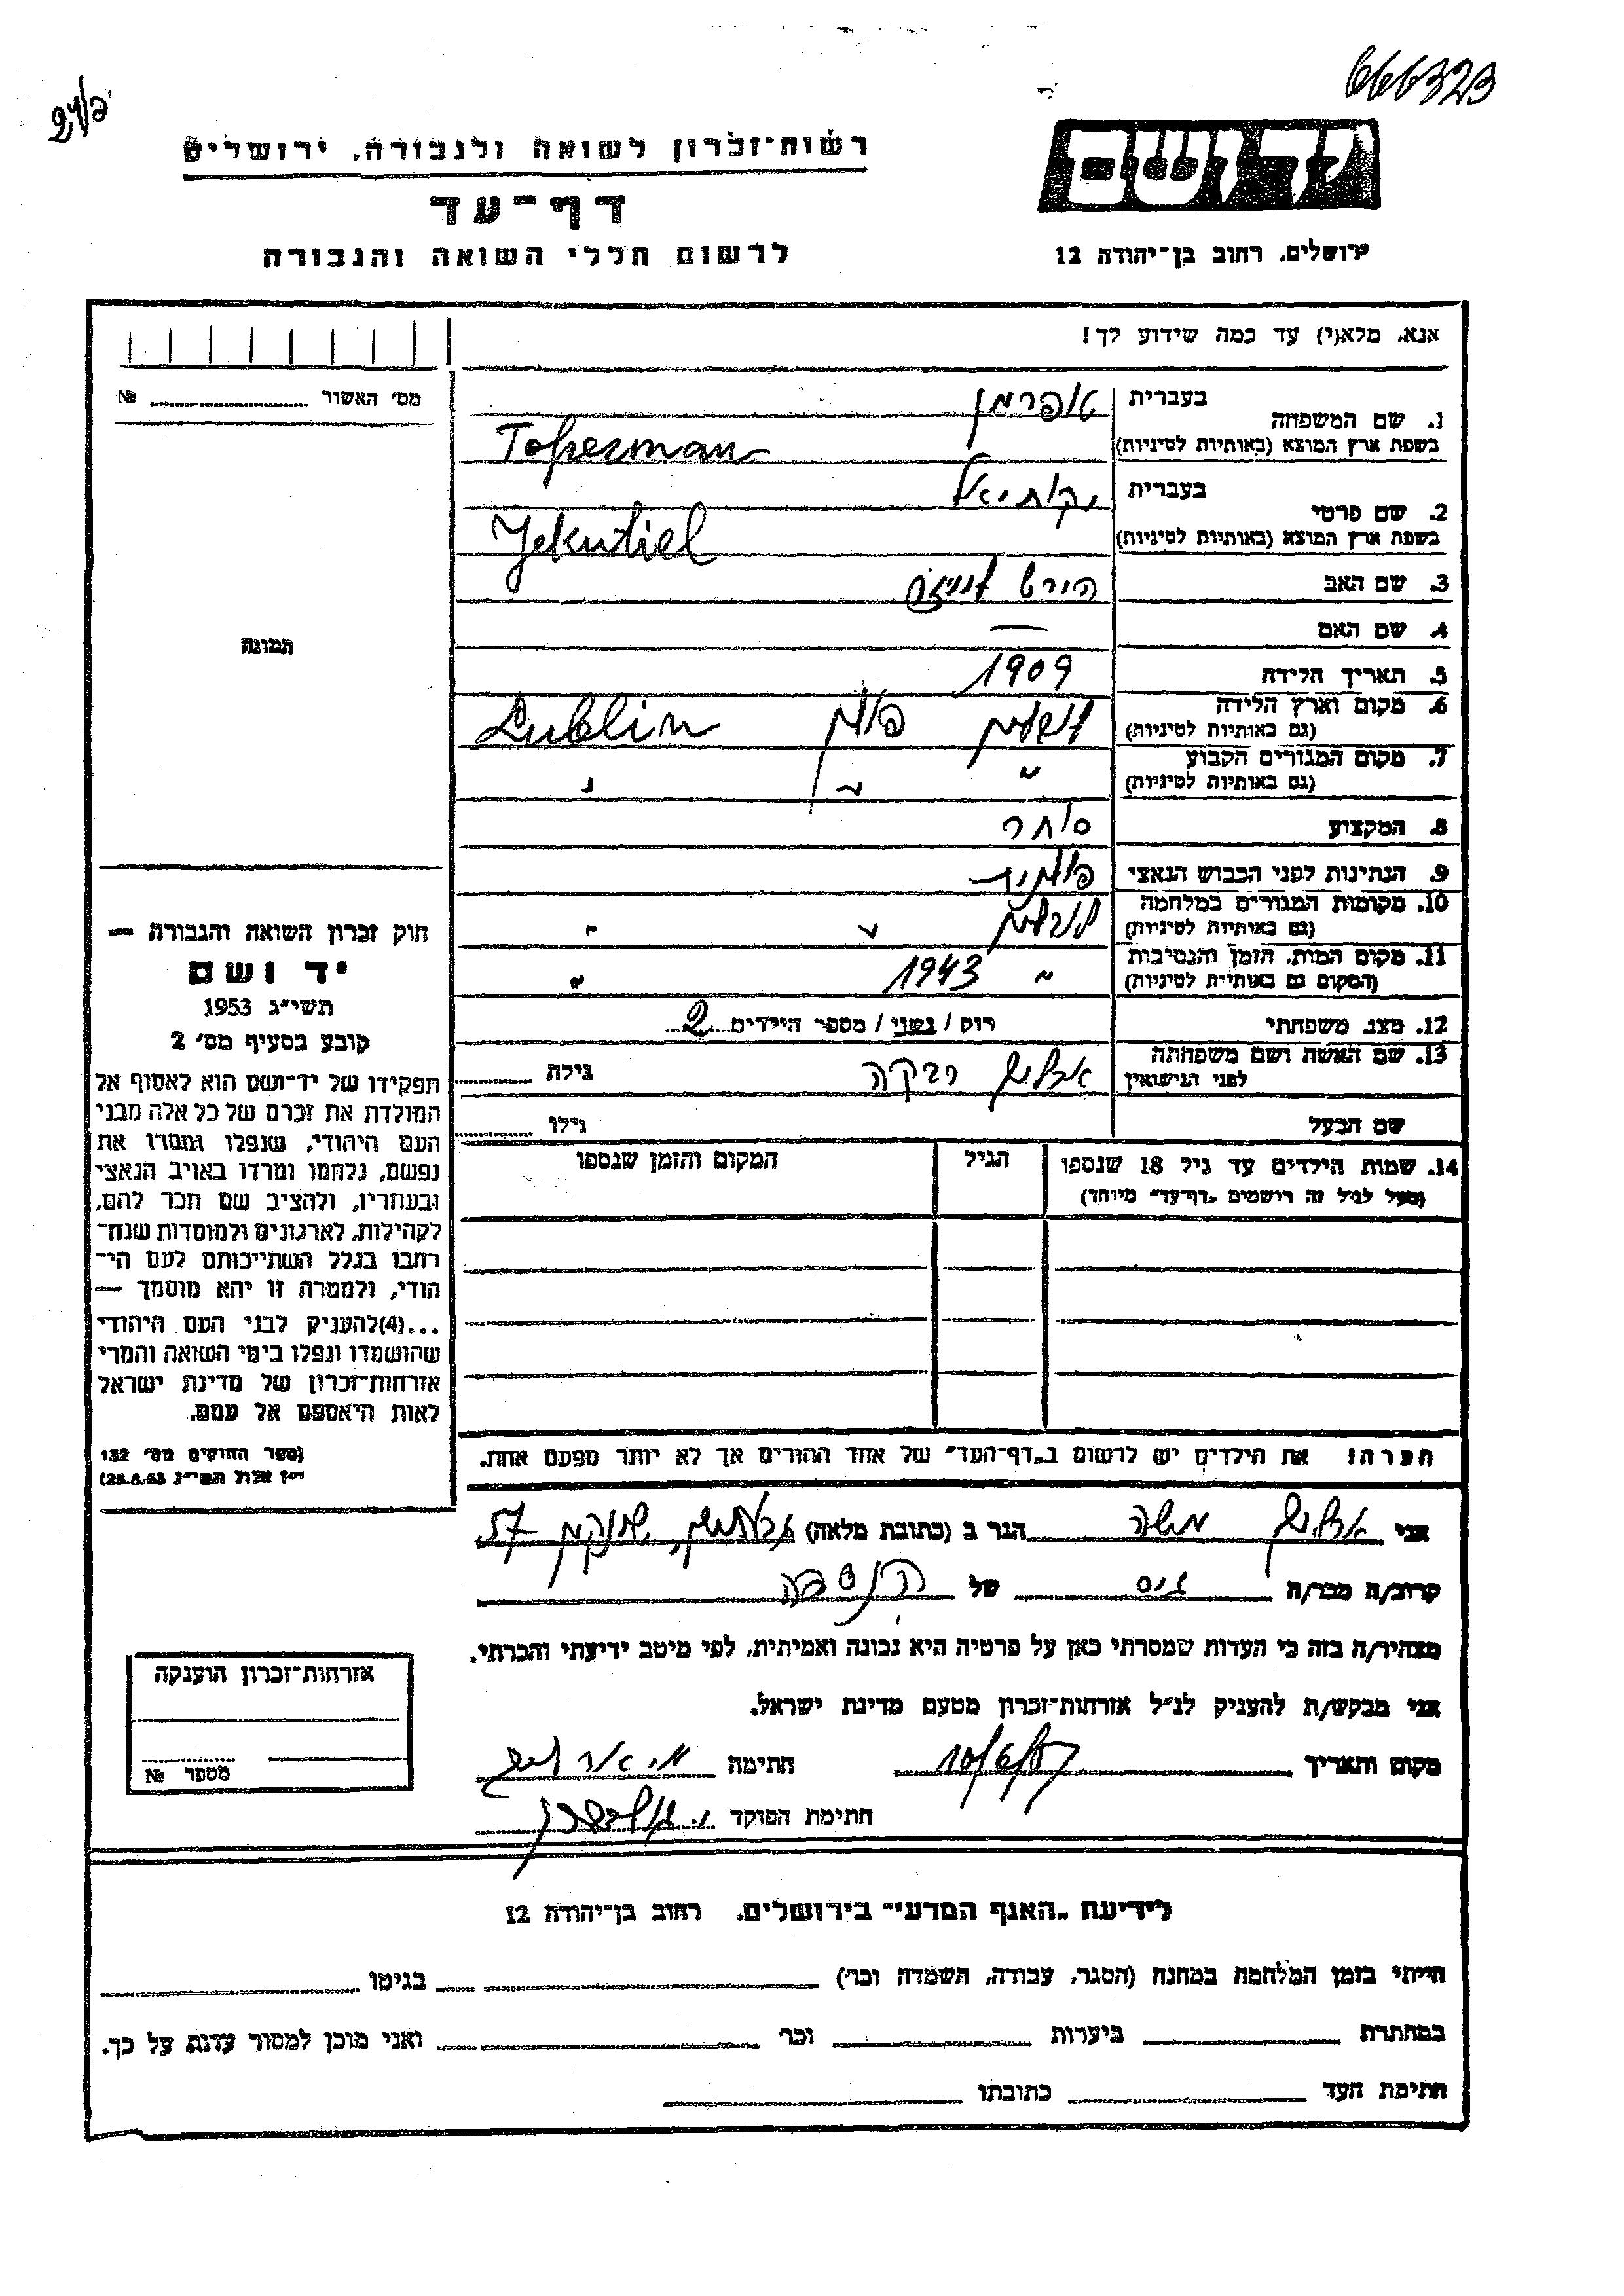 666323
רשות־זכרון לשואה ולגבורה, ירושלים
דף־עד
לרשום חללי השואה והגבורה
יד ושם
ירושלים, רחוב בן־יהודה 12
אנא, מלא(י) עד כמה שידוע לך!
מס' האשור № 
1. שם המשפחה בעברית טופרמן
בשפת ארץ המוצא (באותיות לטיניות) Toperman
2. שם פרטי בעברית יקותיאל
בשפת ארץ המוצא (באותיות לטיניות) Jekutiel
3. שם האב הירש
4. שם האם —
5. תאריך הלידה 1909
6. מקום וארץ הלידה (גם באותיות לטיניות) לובלין פולין Lublin
7. מקום המגורים הקבוע (גם באותיות לטיניות) " " "
8. המקצוע סוחר
9. הנתינות לפני הכבוש הנאצי פולנית
10. מקומות המגורים במלחמה (גם באותיות לטיניות) לובלין " "
11. מקום המות, הזמן והנסיבות (המקום גם באותיות לטיניות) " 1943 "
12. מצב משפחתי רוק / נשוי / מספר הילדים 2
13. שם האשה ושם משפחתה לפני הנישואין רבקה גילה
שם הבעל גילו
14. שמות הילדים עד גיל 18 שנספו הגיל המקום והזמן שנספו
(מעל לגיל זה רושמים "דף־עד" מיוחד)
הערה! את הילדים יש לרשום ב"דף־העד" של אחד ההורים אך לא יותר מפעם אחת.
תמונה
חוק זכרון השואה והגבורה —
יד ושם
תשי"ג 1953
קובע בסעיף מס' 2
תפקידו של יד־ושם הוא לאסוף אל
המולדת את זכרם של כל אלה מבני
העם היהודי, שנפלו ומסרו את
נפשם, נלחמו ומרדו באויב הנאצי
ובעוזריו, ולהציב שם וזכר להם,
לקהילות, לארגונים ולמוסדות שנח־
רבו בגלל השתייכותם לעם הי־
הודי, ולמטרה זו יהא מוסמך —
...(4)להעניק לבני העם היהודי
שהושמדו ונפלו בימי השואה והמרי
אזרחות־זכרון של מדינת ישראל
לאות היאספם אל עמם.
(ספר החוקים מס' 132
י"ז אלול תשי"ג 28.8.53)
אני משה הגר ב (כתובת מלאה) 57
קרוב/ה מכר/ה גיס של הנספה
מצהיר/ה בזה כי העדות שמסרתי כאן על פרטיה היא נכונה ואמיתית, לפי מיטב ידיעתי והכרתי.
אני מבקש/ת להעניק לנ"ל אזרחות־זכרון מטעם מדינת ישראל.
מקום ותאריך חתימה
חתימת הפוקד
אזרחות־זכרון הוענקה
מספר №
לידיעת "האגף המדעי" בירושלים, רחוב בן־יהודה 12
הייתי בזמן המלחמה במחנה (הסגר, עבודה, השמדה וכו') בגיטו
במחתרת ביערות וכו' ואני מוכן למסור עדות על כך.
חתימת העד כתובתו